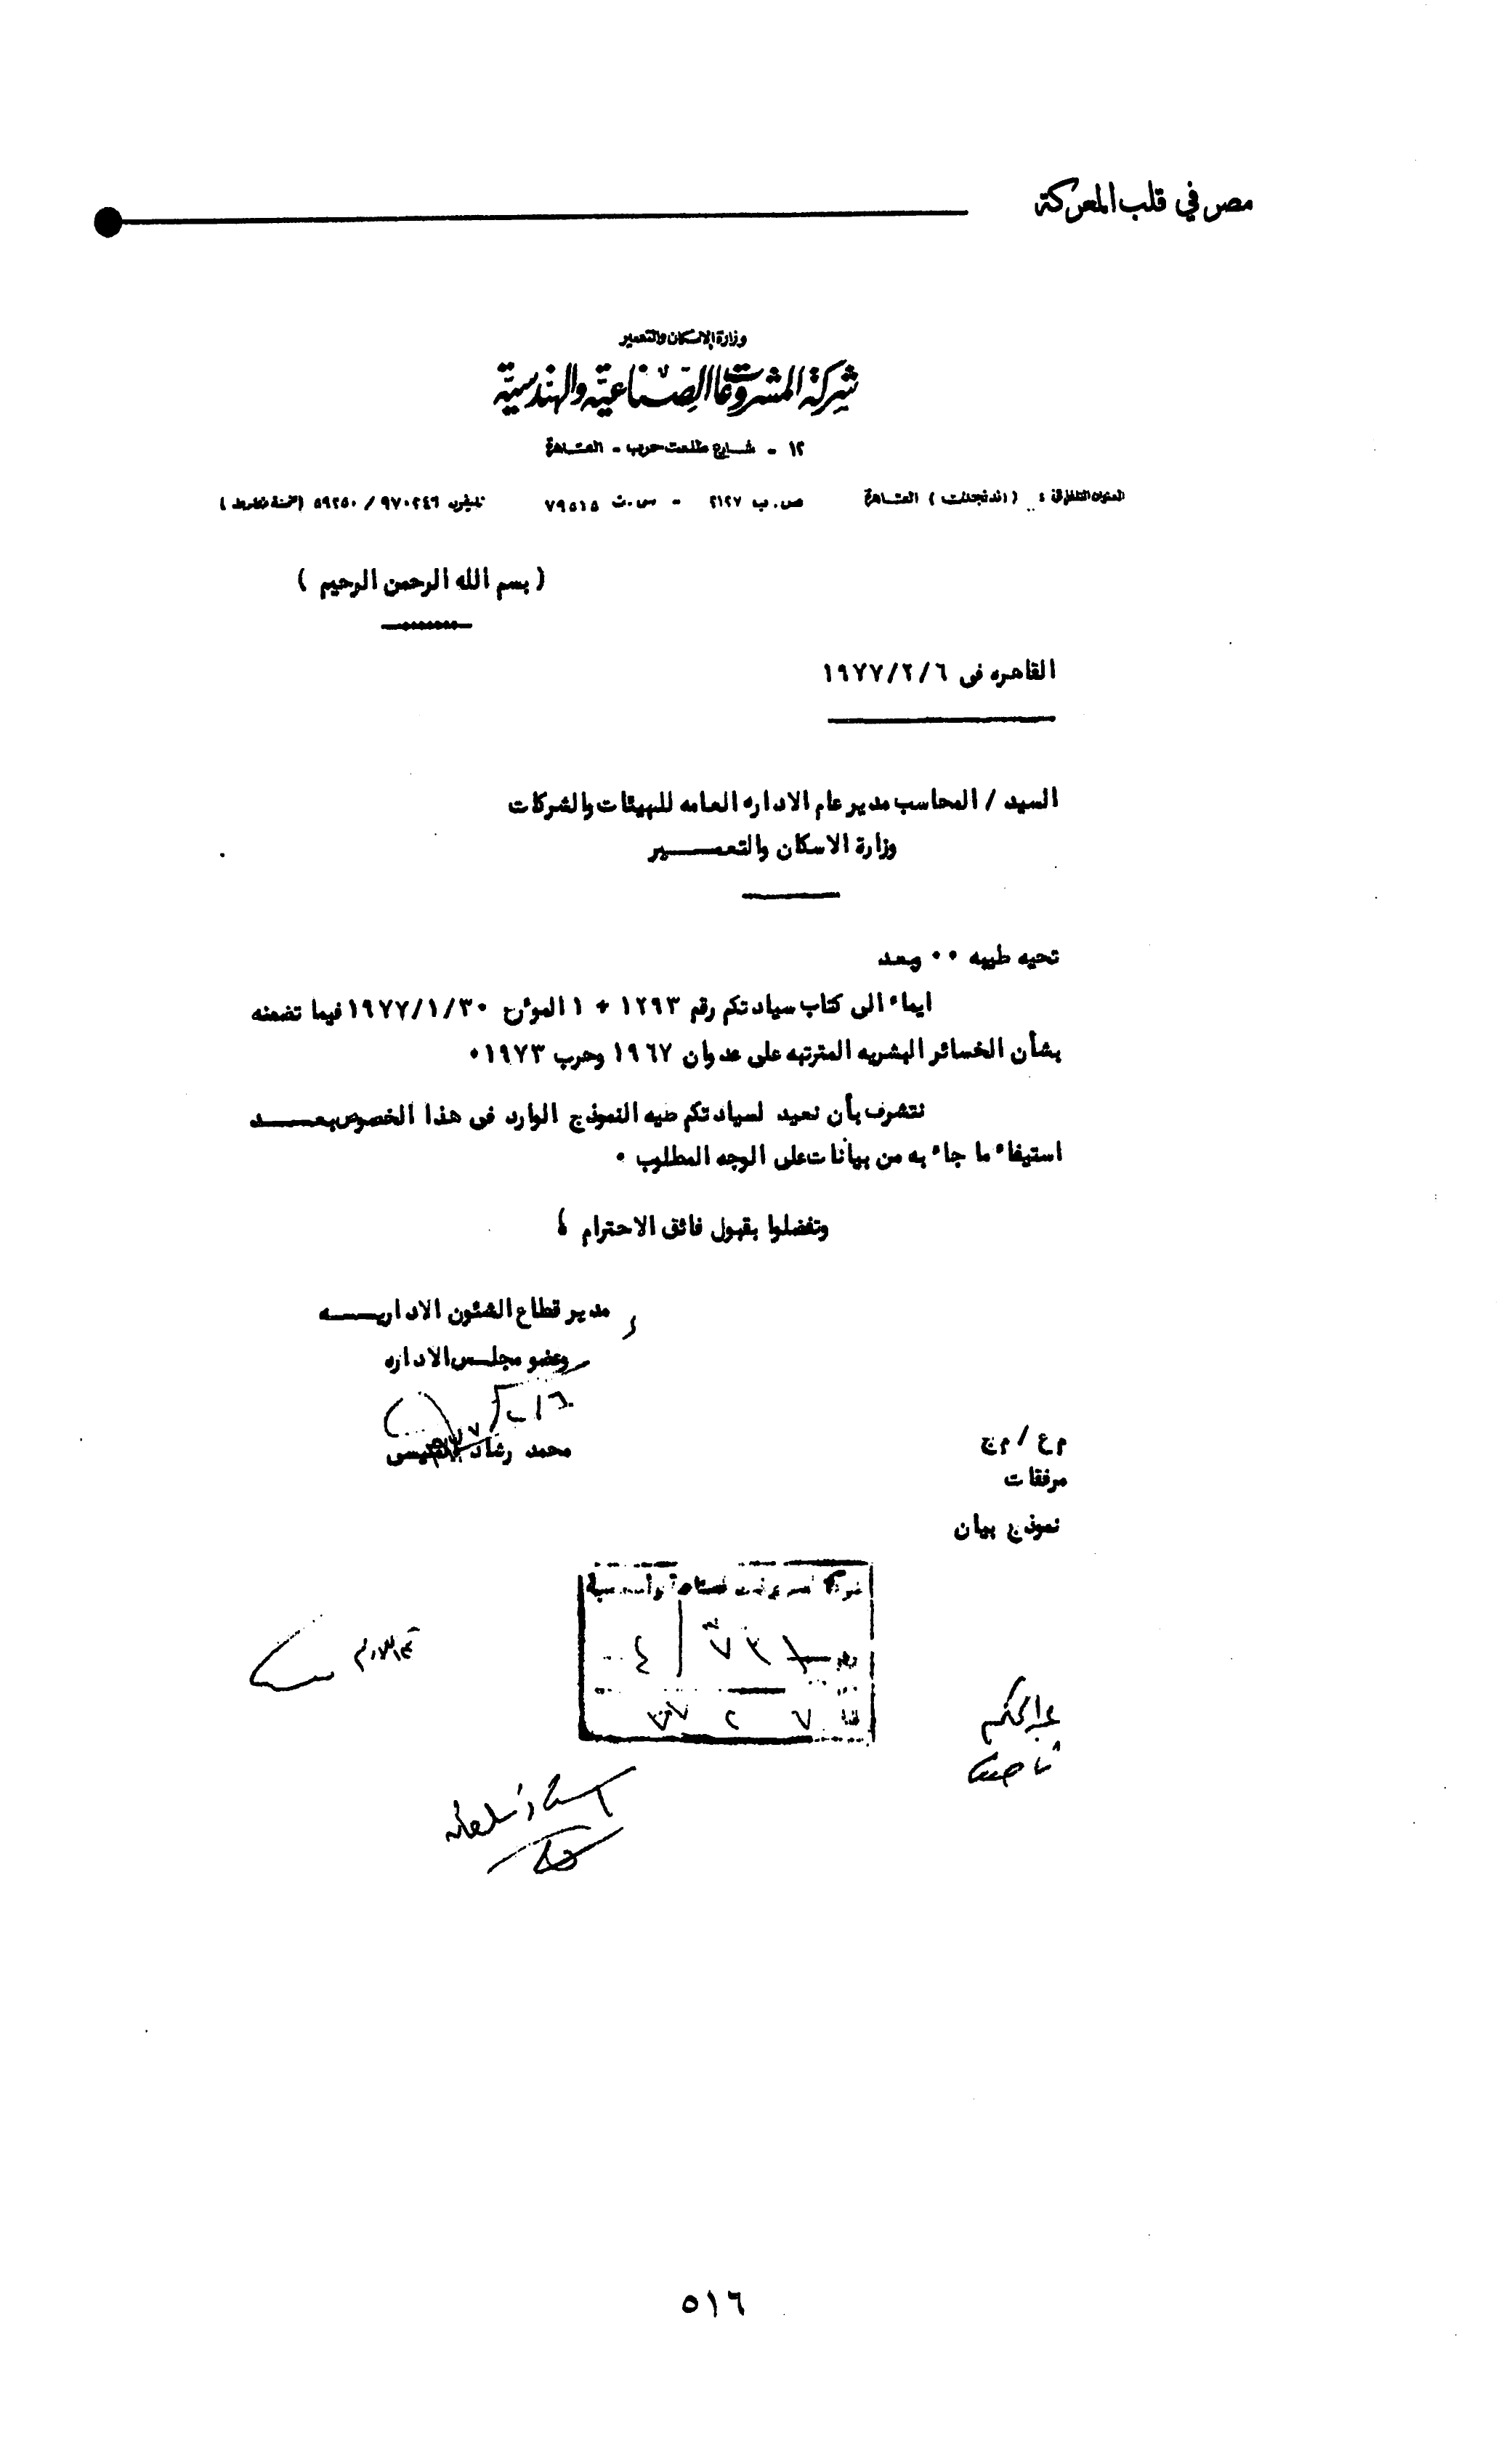 مصر في قلب المعركة
وزارة الاسكان والتعمير
شركة المشروعات الصناعية والهندسية
١٢ - شارع طلعت حرب - القاهرة
العنوان التلغرافى : ( اندنجدات ) القاهرة ص . ب ٢١٢٧ - س . ت ٧٩٥١٥ تليفون ٩٧٠٢٤٦ / ٥٩٢٥٠ (خمسة خطوط)
( بسم الله الرحمن الرحيم )
القاهره فى ٦ / ٢ / ١٩٧٧
السيد / المحاسب مدير عام الاداره العامه للهيئات والشركات
وزارة الاسكان والتعمـــــير
تحيه طيبه ٠٠ وبعد
ايماء الى كتاب سيادتكم رقم ١٢٩٣ + ١ المؤرخ ٣٠ / ١ / ١٩٧٧ فيما تضمنه
بشأن الخسائر البشريه المترتبه على عدوان ١٩٦٧ وحرب ١٩٧٣ ٠
نتشرف بأن نعيد لسيادتكم طيه النموذج الوارد فى هذا الخصوص بعـــــد
استيفاء ما جاء به من بيانات على الوجه المطلوب ٠
وتفضلوا بقبول فائق الاحترام ،
مدير قطاع الشئون الاداريـــــه
وعضو مجلس الاداره
محمد رشاد
م ع / م ج
مرفقات
نموذج بيان
٥١٦